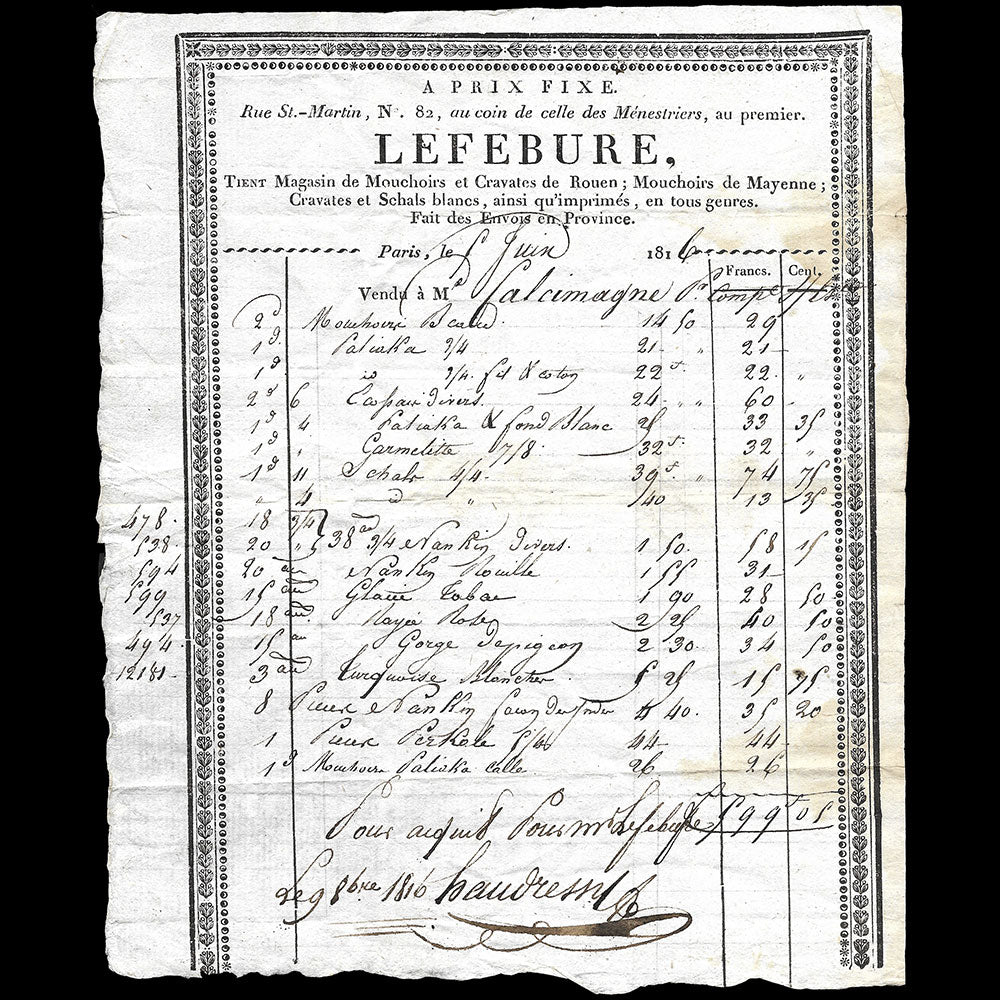 A PRIX FIXE.
Rue St.-Martin, N°. 82, au coin de celle des Ménestriers, au premier.
LEFEBURE,
TIENT Magasin de Mouchoirs et Cravates de Rouen; Mouchoirs de Mayenne;
Cravates et Schals blancs, ainsi qu'imprimés, en tous genres.
Fait des Envois en Province.
Paris, le 5 Juin 1816
Francs. Cent.
Vendu à Mr Calcimagne Pr Compt
2d Mouchoirs 14 50 29
1d Paliaka 3/4 21 " 21
1d do 3/4 fil & coton 22 " 22 "
2d 6 divers 24 " 60
1d 4 Paliaka & fond Blanc 25 33 35
1d " Carmelitte 7/8 32 32 "
1d 11 Schals 4/4 39 " 74 75
" 4 do " 40 13 35
478 18 3/4
538 20 " 38 au 3/4 Nankin divers 1 50 58 15
594 20 au Nankin Rouille 1 55 31
599 15 au Tabac 1 90 28 50
537 18 au Rose 2 25 40 50
494 15 au Gorge De pigeon 2 30 34 50
12181 3 au turquoise 5 25 15 75
8 Nankin 4 40 35 20
1 Perkale 44 44
1d Mouchoirs Paliaka 26 26
Pour acquit Pour mr Lefebure 599 05
Le 9 8bre 1816